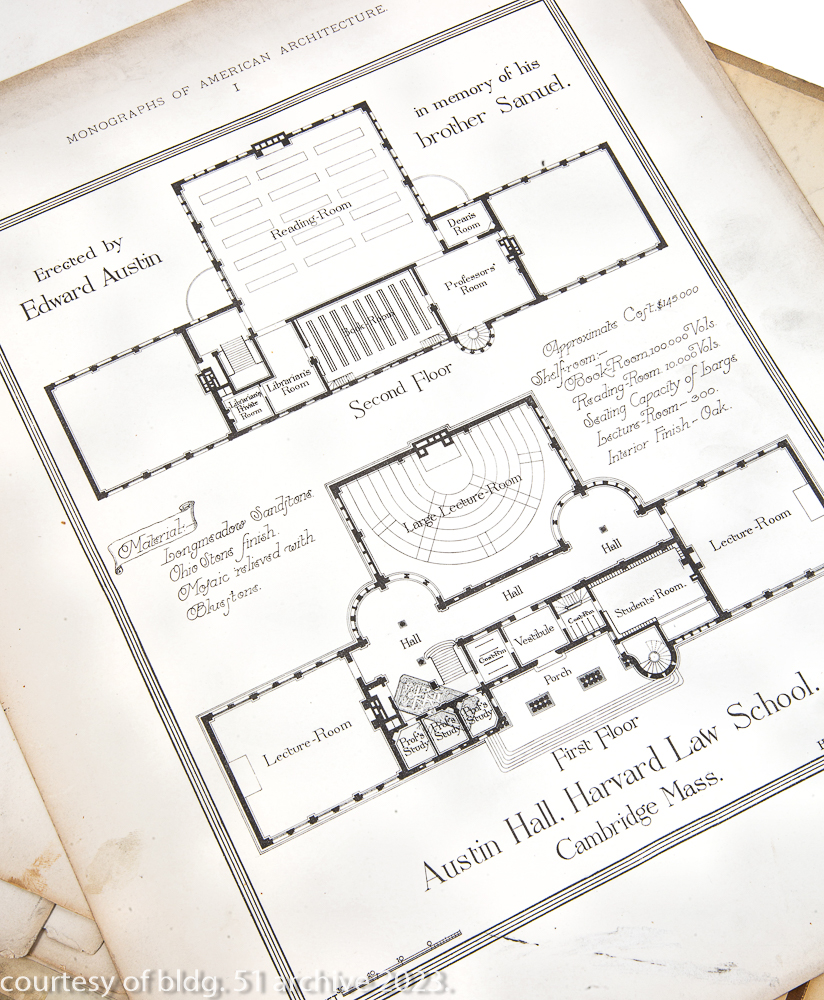 MONOGRAPHS OF AMERICAN ARCHITECTURE.
I
Erected by
Edward Austin
in memory of his
brother Samuel.
Reading-Room
Dean's
Room
Professors'
Room
Book-Room
Librarian's
Room
Librarian's
Private
Room
Second Floor
Approximate Cost. $145.000
Shelf-room:-
Book-Room. 100.000 Vols.
Reading-Room. 10.000 Vols.
Seating Capacity of Large
Lecture-Room - 300.
Interior Finish - Oak.
Material:-
Longmeadow Sandstone.
Ohio Stone finish.
Mosaic relieved with
Bluestone.
Large Lecture-Room
Hall
Lecture-Room
Hall
Students' Room.
Hall
Vestibule
Coat-Rm
Coat-Rm
Porch
Lecture-Room
Prof's
Study
Prof's
Study
Prof's
Study
First Floor
Austin Hall, Harvard Law School.
Cambridge Mass.
20 10 0
courtesy of bldg. 51 archive 2023.